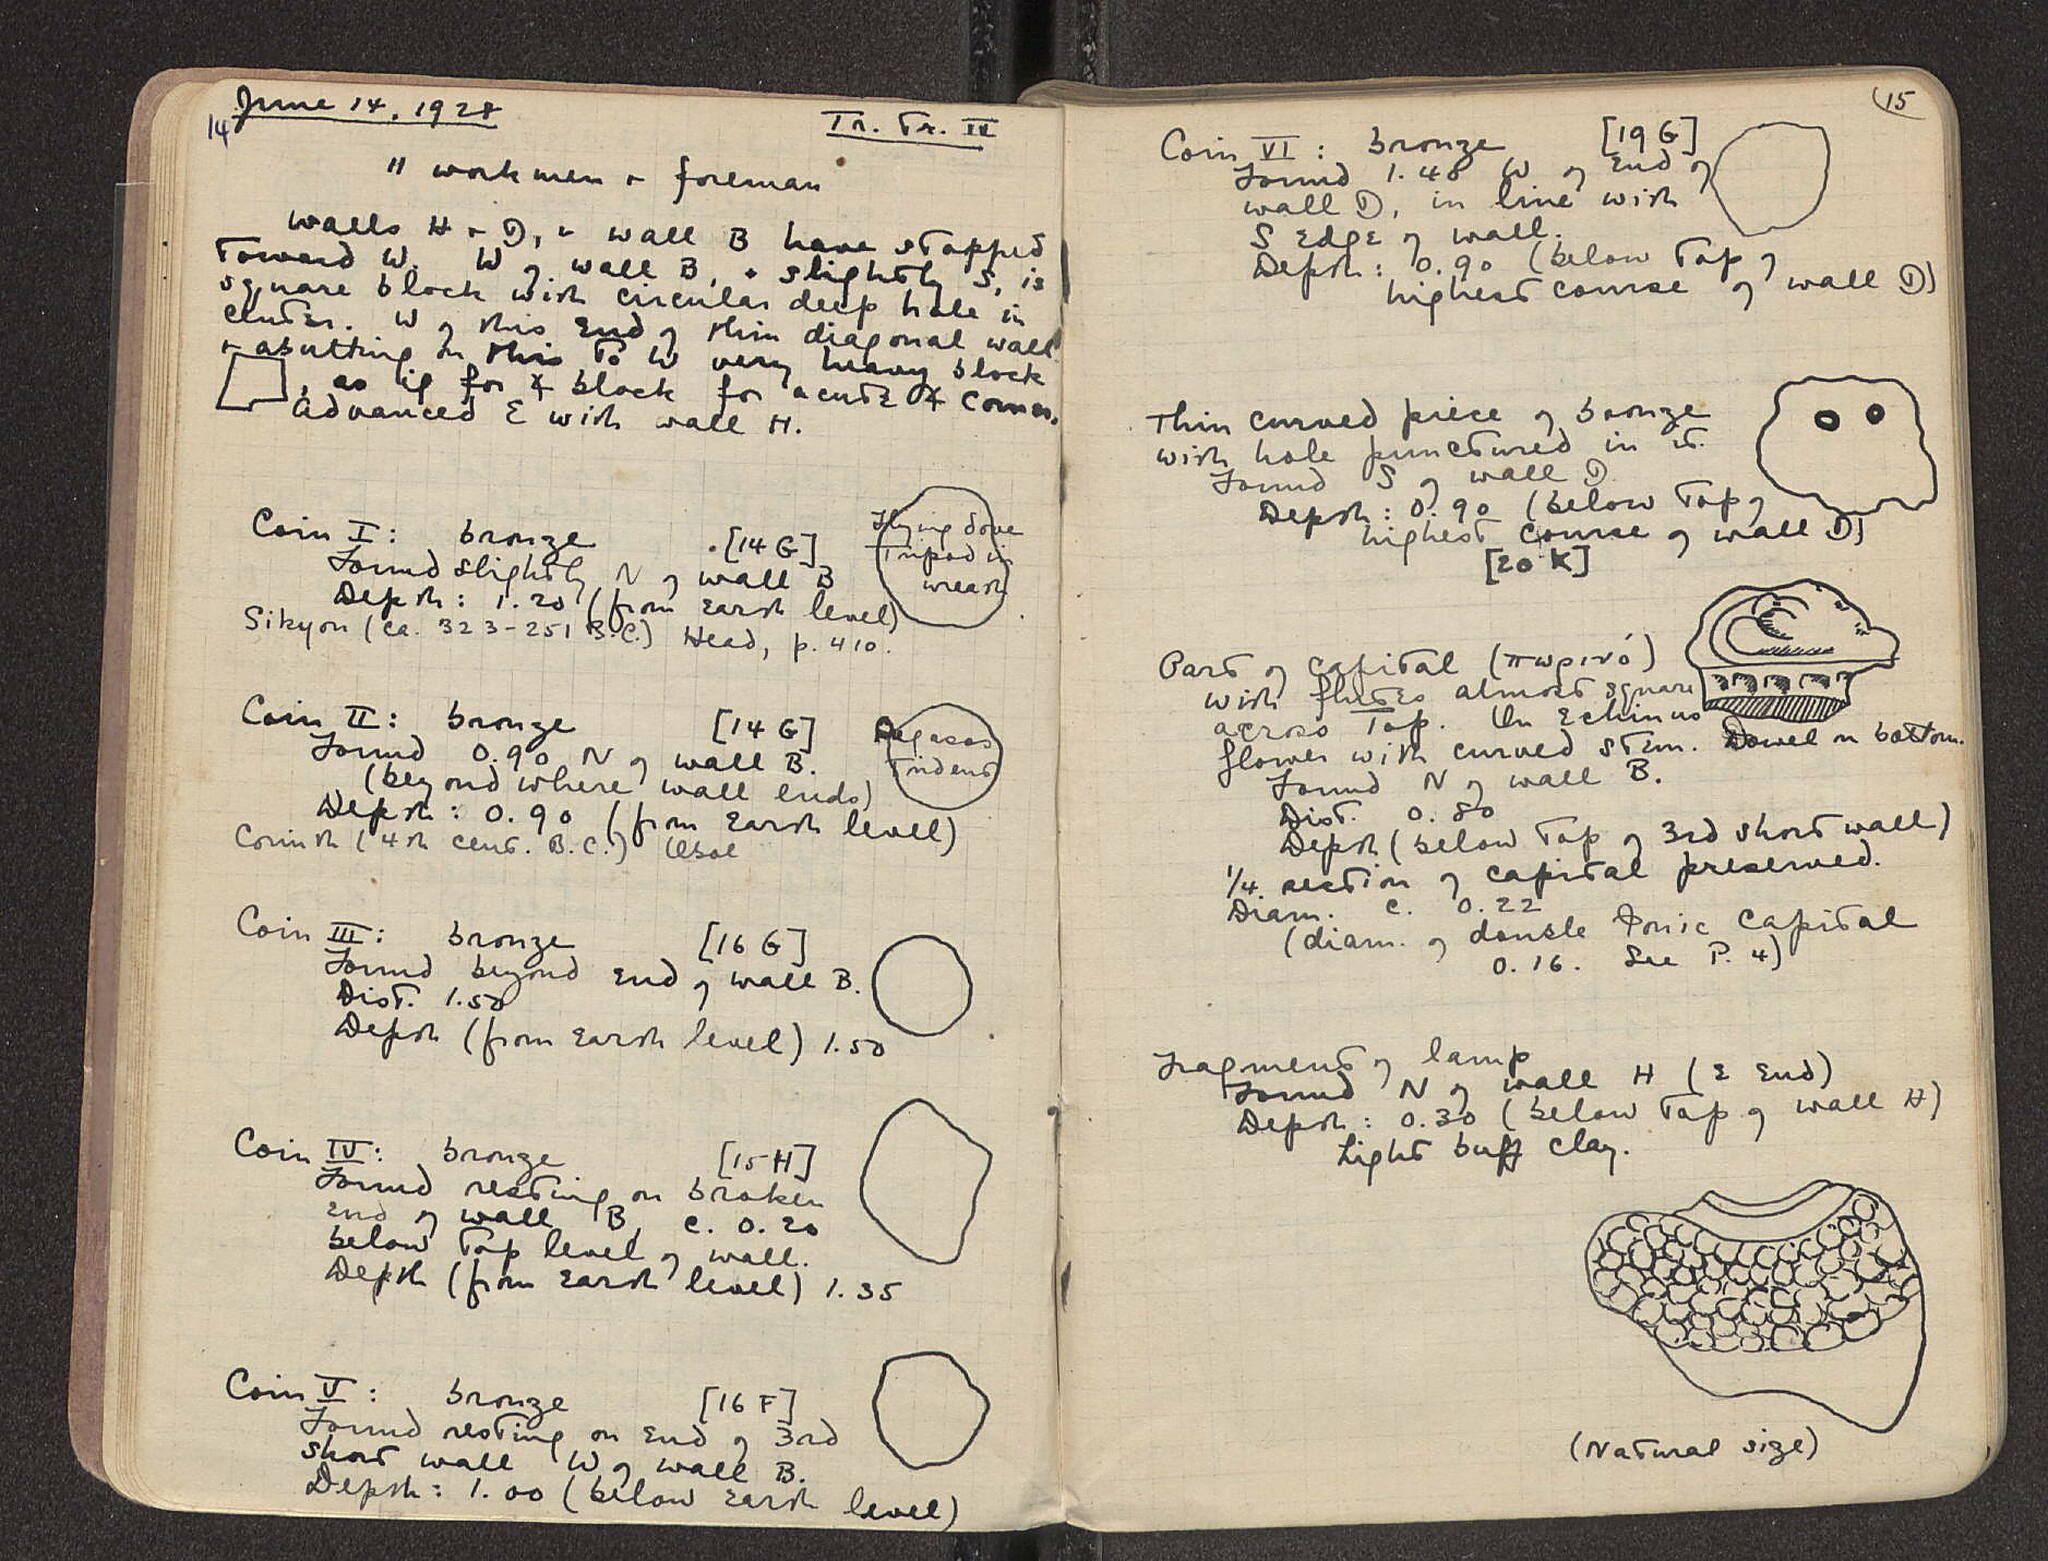 June 14, 1928
14
Tr. Tr. IV
11 workmen + foreman
Walls H + D, + wall B have stopped
toward W. W of wall B, + slightly S, is
square block with circular deep hole in
center. W of this end of thin diagonal wall
+ abutting on this to W very heavy block
, as if for ∡ block for acute ∡ corner.
Advanced E with wall H.
Coin I: bronze [14 G]
Found slightly N of wall B
Depth: 1.20 (from earth level)
Sikyon (ca. 323-251 B.C.) Head, p. 410.
Flying dove
Tripod in
wreath
Coin II: bronze [14 G]
Found 0.90 N of wall B.
(beyond where wall ends)
Depth: 0.90 (from earth level)
Corinth (4th cent. B.C.) Obol
Pegasos
Trident
Coin III: bronze [16 G]
Found beyond end of wall B.
Dist. 1.50
Depth (from earth level) 1.50
Coin IV: bronze [15 H]
Found resting on broken
end of wall B, c. 0.20
below top level of wall.
Depth (from earth level) 1.35
Coin V: bronze [16 F]
Found resting on end of 3rd
short wall W of wall B.
Depth: 1.00 (below earth level)
15
Coin VI: bronze [19 G]
Found 1.48 W of end of
wall D, in line with
S edge of wall.
Depth: 0.90 (below top of
highest course of wall D)
Thin curved piece of bronze
with hole punctured in it.
Found S of wall D
Depth: 0.90 (below top of
highest course of wall D)
[20 K]
Part of capital (πωρινό)
with flutes almost square
across top. On echinus
flower with curved stem. Dowel on bottom.
Found N of wall B.
Dist. 0.80
Depth (below top of 3rd short wall)
1/4 section of capital preserved.
Diam. c. 0.22
(diam. of double Ionic capital
0.16. See P. 4)
Fragment of lamp
Found N of wall H (E end)
Depth: 0.30 (below top of wall H)
Light buff clay.
(Natural size)